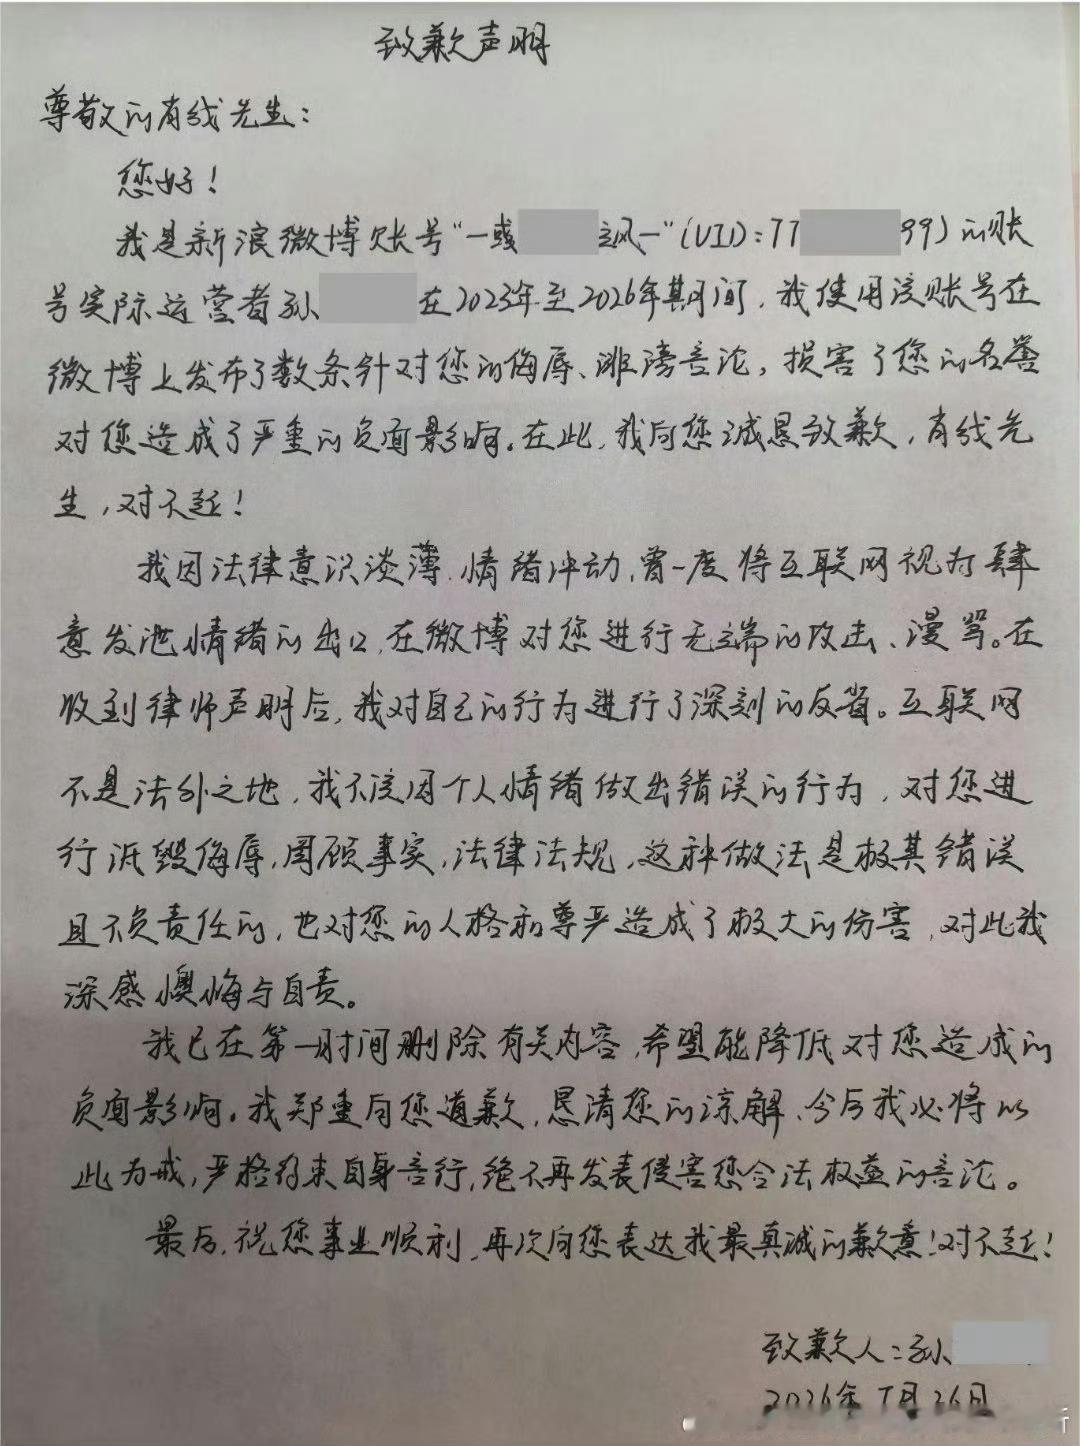 致歉声明
尊敬的有线先生：
您好！
我是新浪微博账号"一或 立风一"（UID：77 99）的账
号实际运营者孙 在2023年至2026年其间，我使用该账号在
微博上发布了数条针对您的侮辱、诽谤言论，损害了您的名誉
对您造成了严重的负面影响。在此，我向您诚恳致歉，有线先
生，对不起！
我因法律意识淡薄、情绪冲动，曾一度将互联网视为肆
意发泄情绪的出口，在微博对您进行无端的攻击、漫骂。在
收到律师声明后，我对自己的行为进行了深刻的反省。互联网
不是法外之地，我不该因个人情绪做出错误的行为，对您进
行诋毁侮辱，罔顾事实，法律法规，这种做法是极其错误
且不负责任的，也对您的人格和尊严造成了极大的伤害，对此我
深感懊悔与自责。
我已在第一时间删除有关内容，希望能降低对您造成的
负面影响。我郑重向您道歉，恳请您的谅解、今后我必将以
此为戒，严格约束自身言行，绝不再发表侵害您合法权益的言论。
最后，祝您事业顺利，再次向您表达我最真诚的歉意！对不起！
致歉人：孙
2026年 月26日